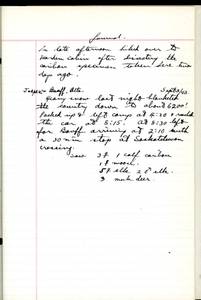 Journal
In late afternoon hiked over to
Warden cabin after dissecting the
caribou specimen taken here two
days ago.
Jasper - Banff, Alta. Sept 23/43
Heavy snow last night blanketed
the country down to about 6200'
Packed up & left camp at 4:30 & reached
the car at 5:15. At 8:30 left
for Banff arriving at 2:10 with
a 30 min stop at Saskatchewan
crossing.
Saw 3 1 calf caribou
1 moose
8 elk 2 elk
3 mule deer